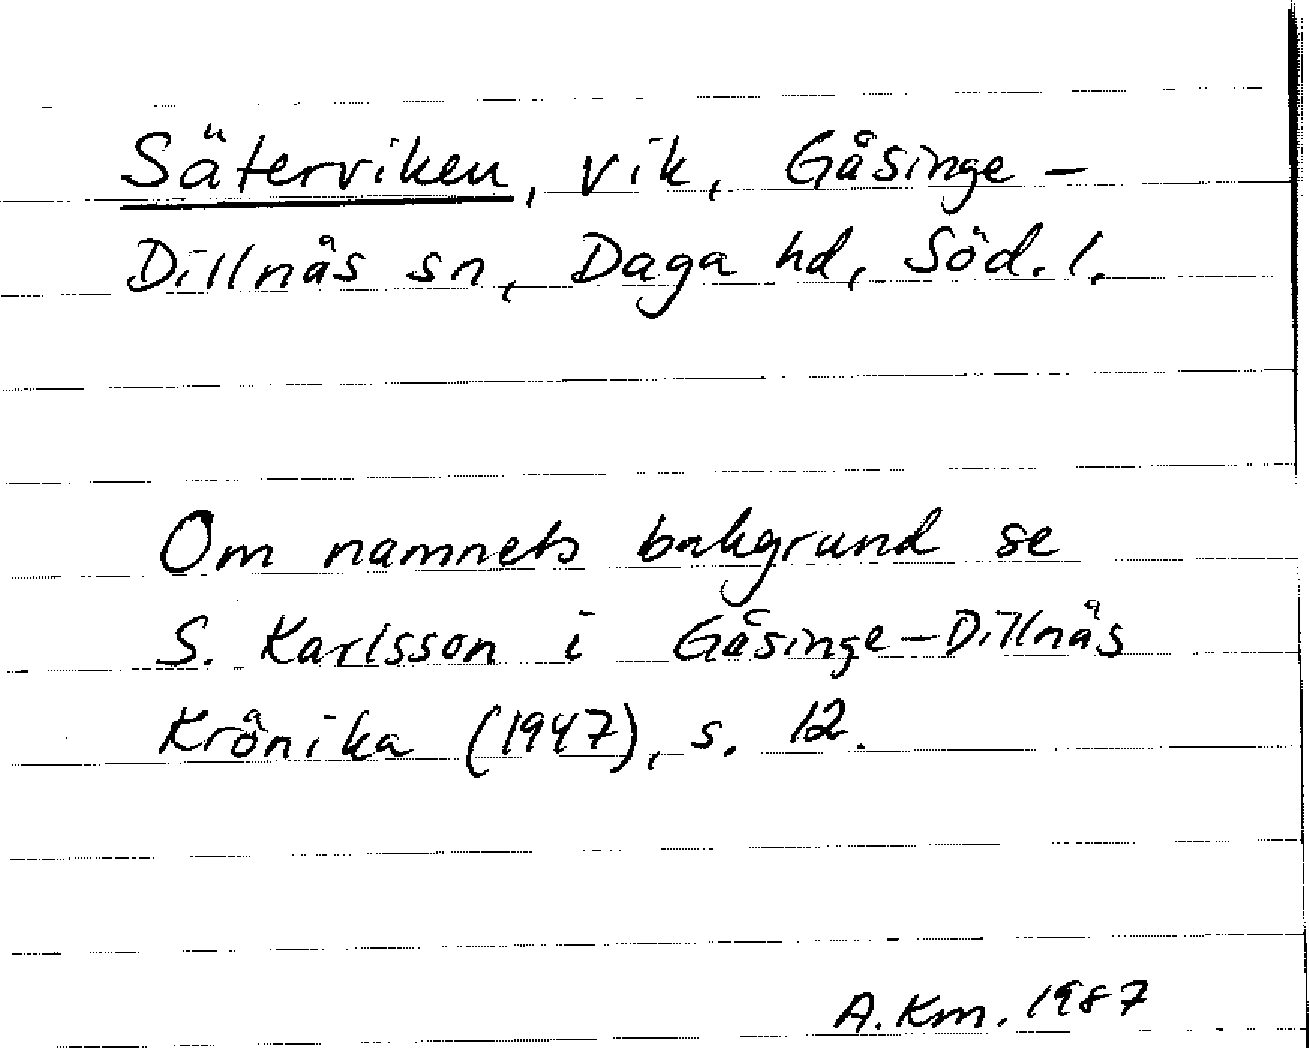 Säterviken, vik, Gåsinge-
Dillnäs sn, Daga hd, Söd. l.
Om namnets bakgrund se
S. Karlsson i Gåsinge-Dillnäs
Krönika (1947), s. 12.
A. Km. 1987